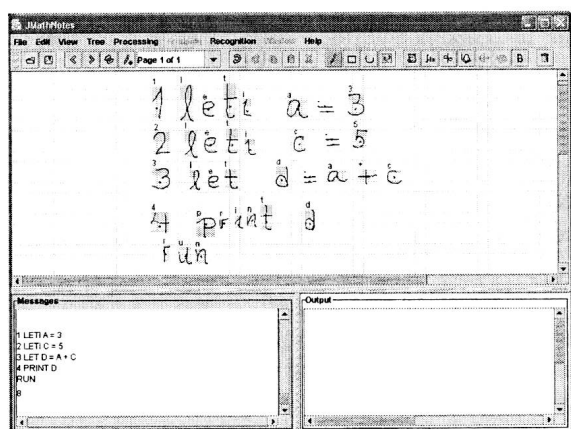 JMathNotes
File Edit View Tree Processing Recognition Window Help
Page 1 of 1 B
1 leti a = 3
2 leti c = 5
3 let d = a + c
4 print d
run
Messages
Output
1 LETI A = 3
2 LETI C = 5
3 LET D = A + C
4 PRINT D
RUN
8